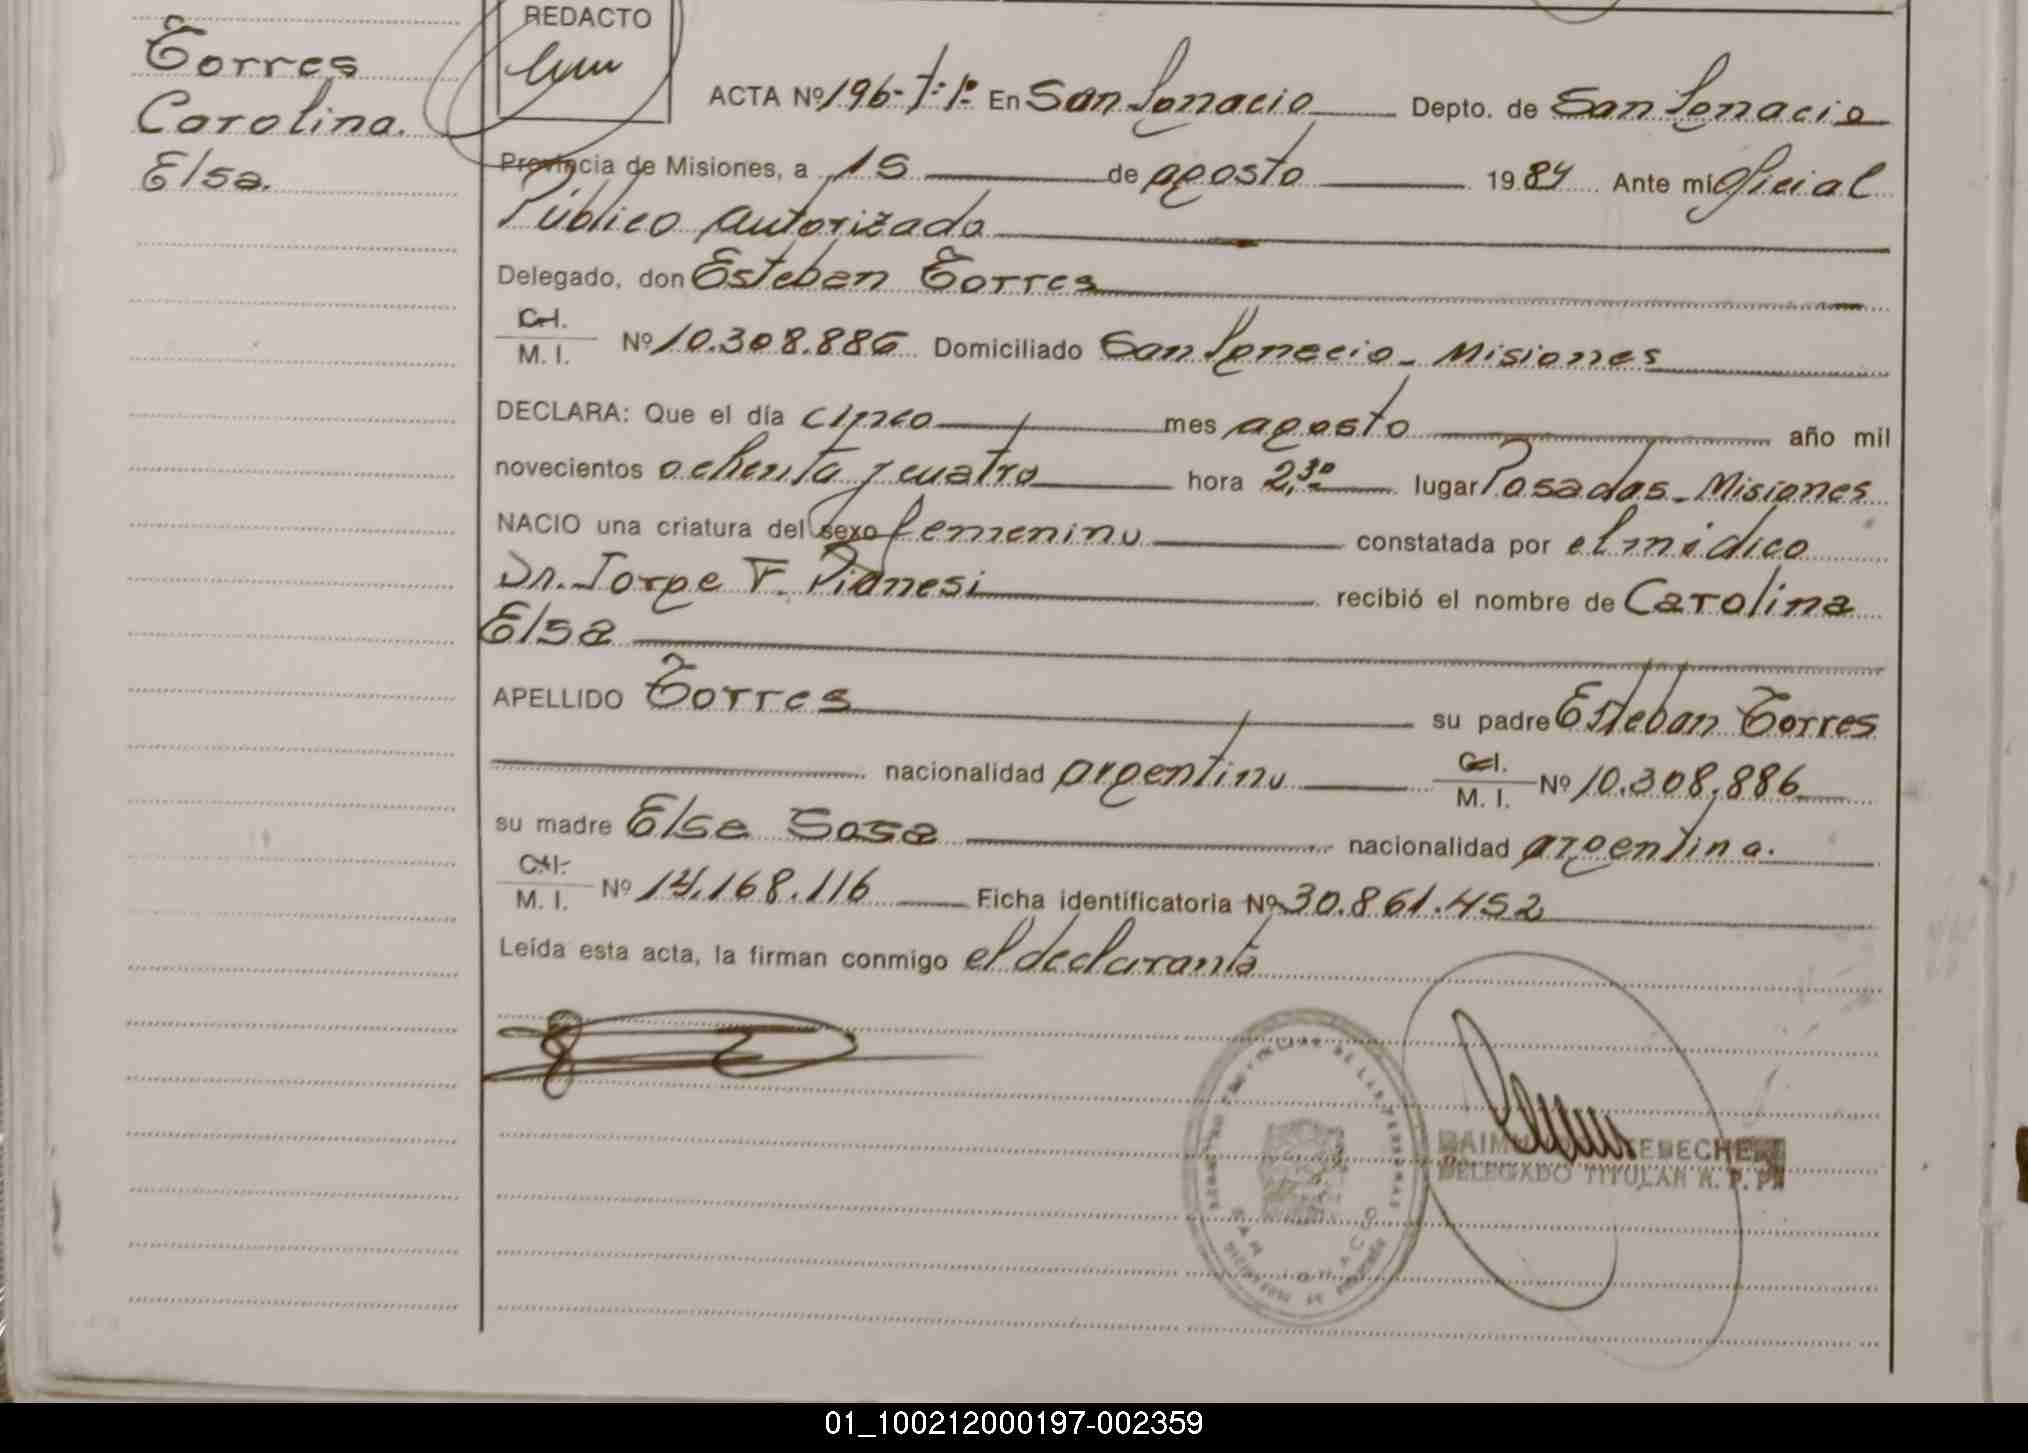 Torres
Carolina.
Elsa.
REDACTO
ACTA Nº 196-T:1º En San Ignacio Depto. de San Ignacio
Provincia de Misiones, a 15 de agosto 1984 Ante mi Oficial
Público Autorizado
Delegado, don Esteban Torres
C.I.
M. I. Nº 10.308.886 Domiciliado San Ignacio - Misiones
DECLARA: Que el día cinco mes agosto año mil
novecientos ochenta y cuatro hora 2,30 lugar Posadas - Misiones
NACIO una criatura del sexo femenino constatada por el médico
Dr. Jorge F. Pianesi recibió el nombre de Carolina
Elsa
APELLIDO Torres su padre Esteban Torres
nacionalidad argentino C.I.
M. I. Nº 10.308.886
su madre Elsa Sosa nacionalidad argentina.
C.I.
M. I. Nº 14.168.116 Ficha identificatoria Nº 30.861.452
Leída esta acta, la firman conmigo el declarante
DE LAS PERSONAS
SAN IGNACIO
DELEGADO TITULAR R. P. P.
01_100212000197-002359